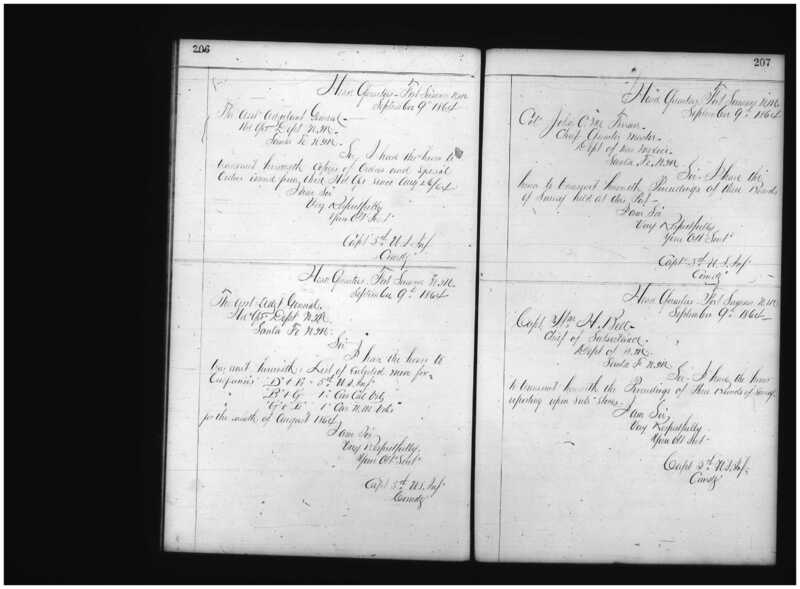 206
Head Quarters Fort Sumner N.M.
September 9th 1864
The Asst Adjutant General
Hd Qrs Dept N.M.
Santa Fe N.M.
Sir I have the honor to
transmit herewith Copies of Orders and Special
Orders issued from these Hd Qrs since Aug 26/64
I am Sir
Very Respectfully
Your Obt Servt
Capt 5th U.S. Inf
Comdg
Head Quarters Fort Sumner N.M.
September 9th 1864
The Asst Adjt General
Hd Qrs Dept N.M.
Santa Fe N.M.
Sir
I have the honor to
transmit herewith List of Enlisted men for
Companies "D" & "E" 5th U.S. Inf
"B" & "G" 1st Cav Cal Vols
1st Cav N.M. Vols
for the month of August 1864
I am Sir
Very Respectfully
Your Obt Servt
Capt 5th U.S. Inf
Comdg
207
Head Quarters Fort Sumner N.M.
September 9th 1864
Col John C. Mc Ferran
Chief Quarter Master
Dept of New Mexico
Santa Fe N.M.
Sir I have the
honor to transmit herewith Proceedings of three Boards
of Survey held at this Post
I am Sir
Very Respectfully
Your Obt Servt
Capt 5th U.S. Inf
Comdg
Head Quarters Fort Sumner N.M.
September 9th 1864
Capt Wm H. Bell
Chief of Subsistence
Dept of N.M.
Santa Fe N.M.
Sir I have the honor
to transmit herewith the Proceedings of three Boards of Survey
reporting upon subs stores
I am Sir
Very Respectfully
Your Obt Servt
Capt 5th U.S. Inf
Comdg